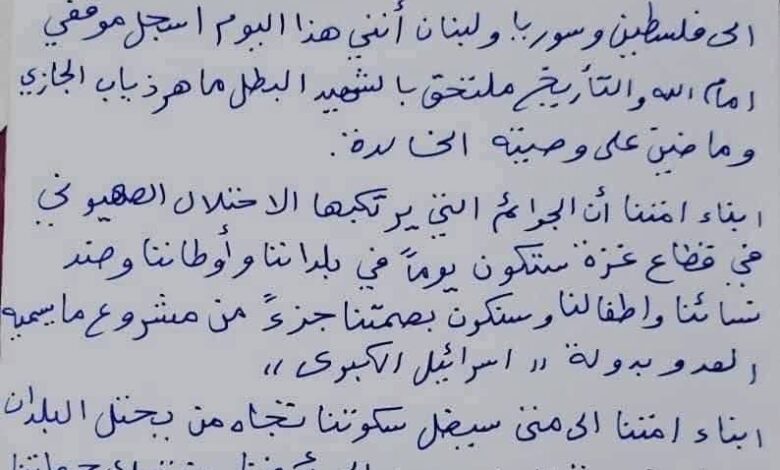 الى فلسطين وسوريا ولبنان أنني هذا اليوم اسجل موقفي
امام الله والتأريخ ملتحق بالشهيد البطل ماهر ذياب الجازي
وماضين على وصيته الخالدة.
ابناء امتنا أن الجرائم التي يرتكبها الاحتلال الصهيوني
في قطاع غزة ستكون يوماً في بلداننا وأوطاننا وضد
نسائنا واطفالنا وسنكون بصمتنا جزءً من مشروع ما يسميه
العدو بدولة " اسرائيل الكبرى "
ابناء امتنا الى متى سيضل سكوتنا تجاه من يحتل البلدان